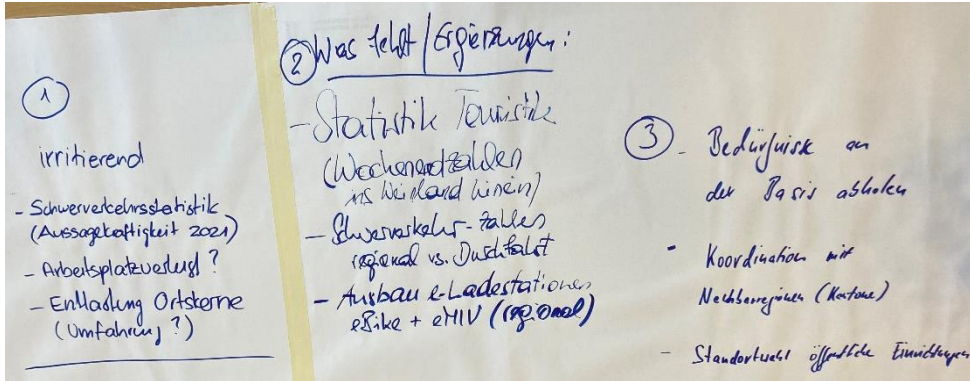 1
irritierend
- Schwerverkehrsstatistik
(Aussagekräftigkeit 2021)
- Arbeitsplatzverlust?
- Entlastung Ortskerne
(Umfahrung?)
2 Was fehlt / Ergänzungen:
- Statistik Touristik
(Wochenendzahlen
ins Weinland hinein)
- Schwerverkehr-Zahlen
regional vs. Durchfahrt
- Ausbau e-Ladestationen
eBike + eMIV (regional)
3 - Bedürfnisse an
der Basis abholen
- Koordination mit
Nachbarregionen (Kantone)
- Standortwahl öffentliche Einrichtungen